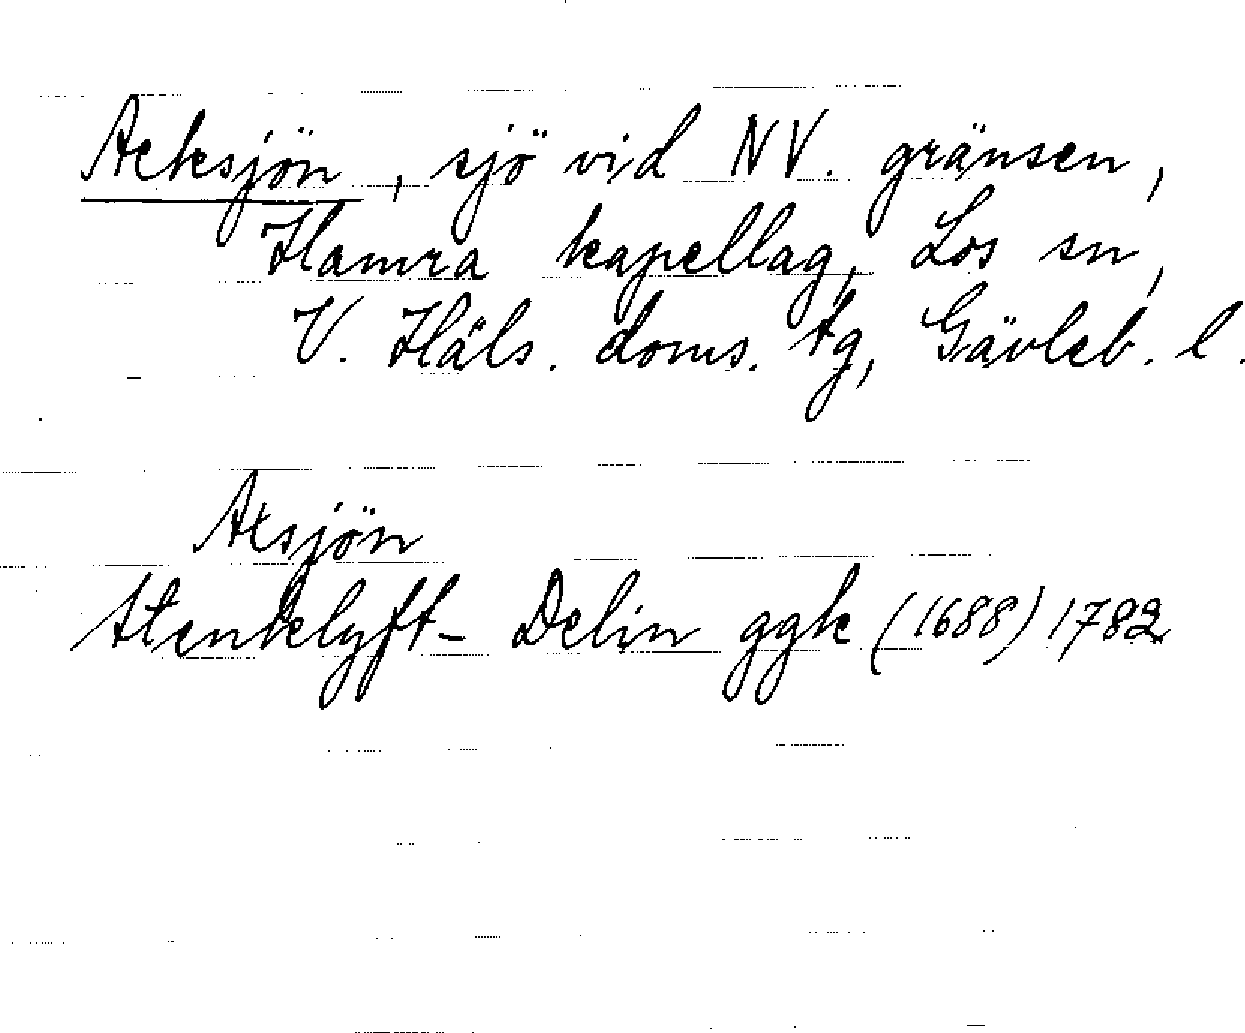 Acksjön, sjö vid NV. gränsen,
Hamra kapellag, Los sn,
V. Häls. doms. tg, Gävleb. l.
Atsjön
Stenklyft- Delin ggk (1688) 1782